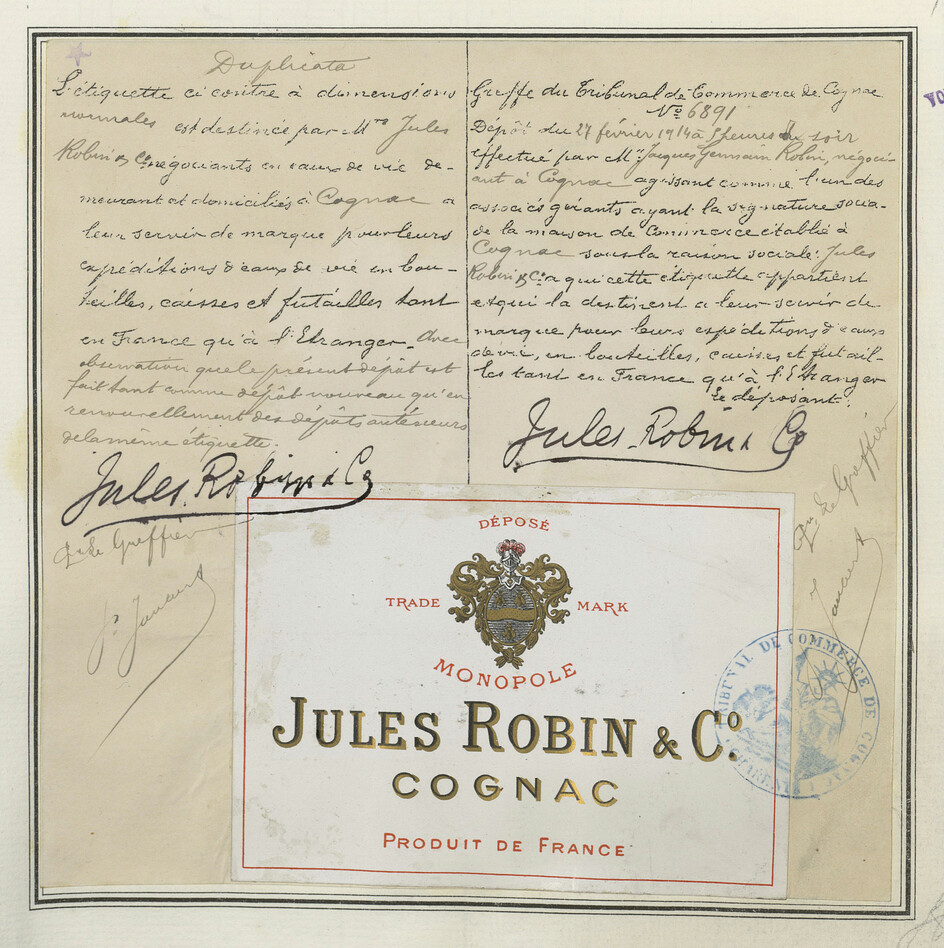 Duplicata
L'étiquette ci contre à dimensions
normales est destinée par Mrs Jules
Robin & Co négociants en eaux de vie de-
meurant et domiciliés à Cognac a
leur servir de marque pour leurs
expéditions d'eaux de vie en bou-
teilles, caisses et futailles tant
en France qu'à l'Etranger. Avec
observation que le présent dépôt est
fait tant comme dépôt nouveau qu'en
renouvellement des dépôts antérieurs
de la même étiquette.
Jules Robin & Co
Le Greffier
Greffe du Tribunal de Commerce de Cognac
No 6891
Dépôt du 27 février 1914 à 5 heures du soir
effectué par Mr Jacques Germain Robin, négoci-
ant à Cognac agissant comme l'un des
associés gérants ayant la signature socia-
de la maison de Commerce établie à
Cognac sous la raison sociale: Jules
Robin & Co a qui cette étiquette appartient
et qui la destinent a leur servir de
marque pour leurs expéditions d'eaux
de vie, en bouteilles, caisses et futail-
les tant en France qu'à l'Etranger
Le déposant:
Jules Robin & Co
Le Greffier
DÉPOSÉ
TRADE MARK
MONOPOLE
JULES ROBIN & Co.
COGNAC
PRODUIT DE FRANCE
TRIBUNAL DE COMMERCE DE COGNAC